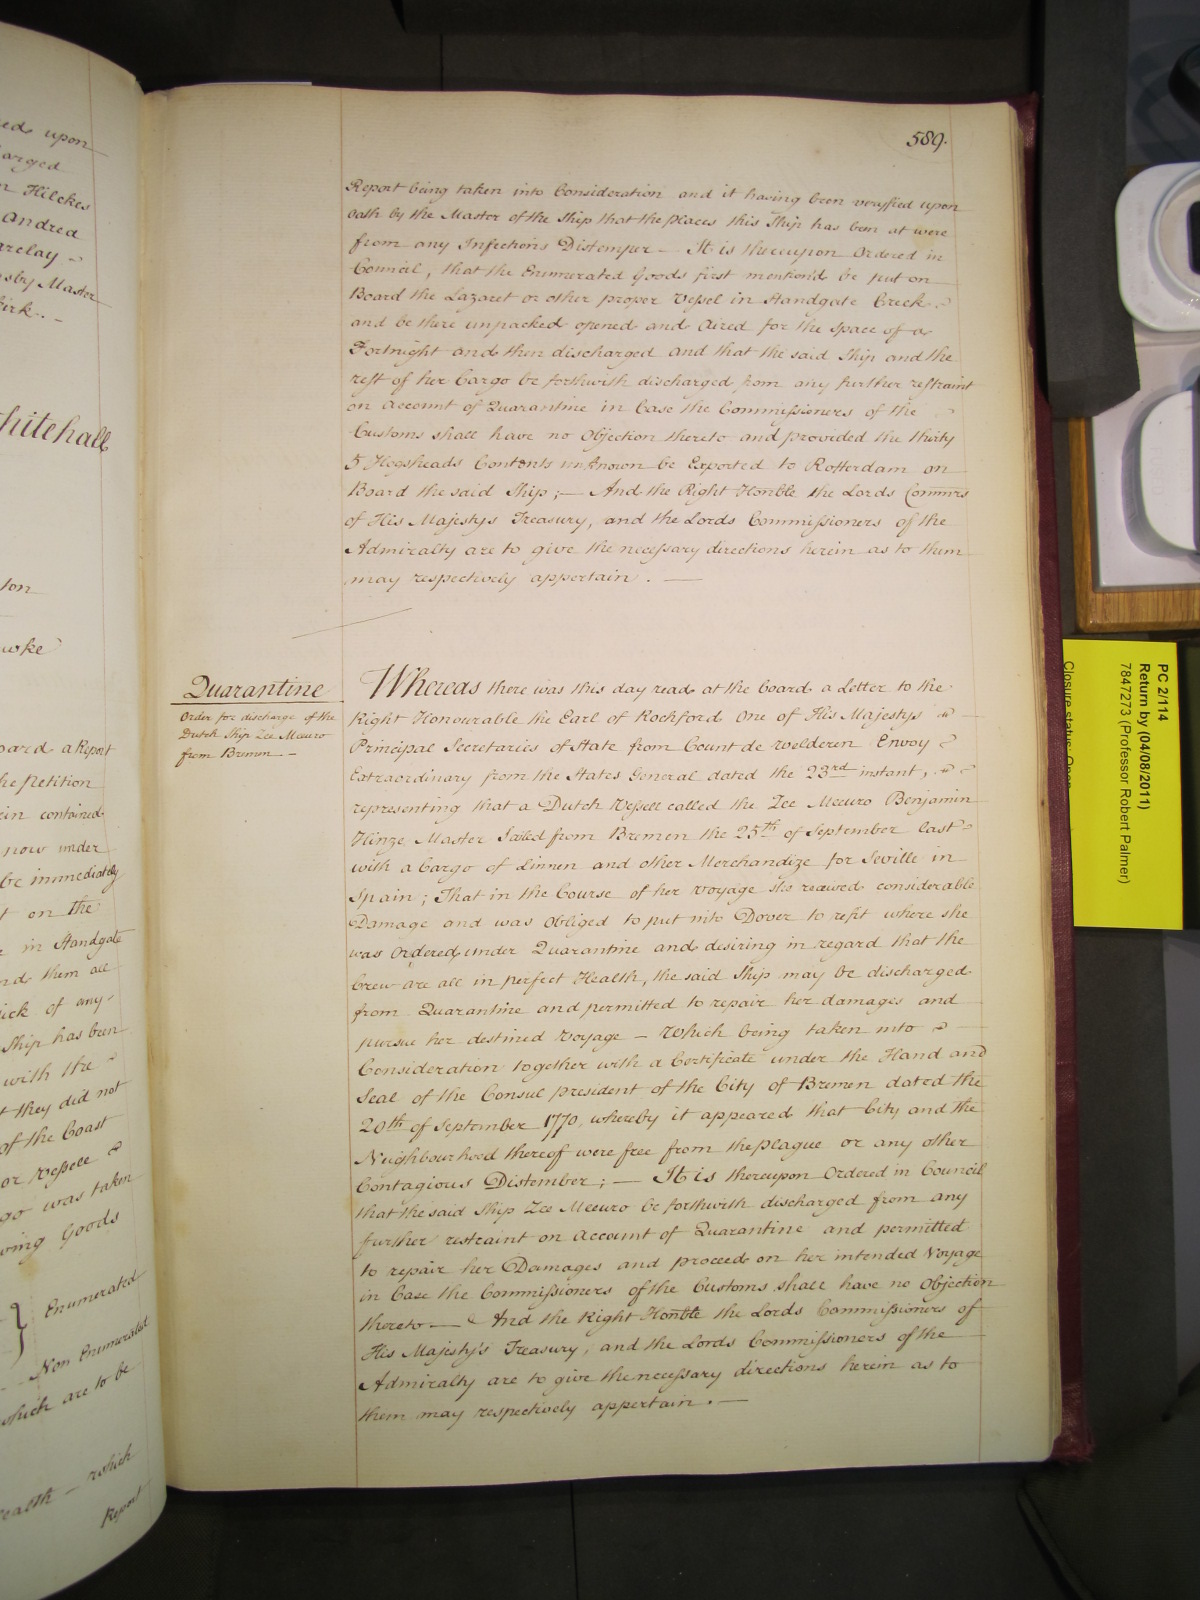 eds upon
arged
n Hilckes
Andred
arclay
sby Master
irk. -
hitehall
ton
wke
oard a Report
he Petition
ein contained
now under
be immediately
t on the
in Standgate
nd them all
ick of any
Ship has been
with the
t they did not
of the Coast
ar Vessell
go was taken
wing Goods
} Enumerated
Non Enumerated
which are to be
ealth - which
Report
589.
Report being taken into Consideration and it having been veryfied upon
Oath by the Master of the Ship that the places this Ship has been at were
from any Infectious Distemper - It is thereupon Ordered in
Council, that the Enumerated Goods first mention'd be put on
Board the Lazaret or other proper Vessel in Standgate Creek
and be there unpacked opened and Aired for the space of a
Fortnight and then discharged and that the said Ship and the
rest of her Cargo be forthwith discharged from any further restraint
on Account of Quarantine in Case the Commissioners of the
Customs shall have no Objection thereto and provided the thirty
5 Hogsheads Contents unknown be Exported to Rotterdam on
Board the said Ship ; - And the Right Honble the Lords Commrs
of His Majestys Treasury, and the Lords Commissioners of the
Admiralty are to give the necessary directions herein as to them
may respectively appertain . -
Quarantine
Order for discharge of the
Dutch Ship Zee Meeuro
from Bremen -
Whereas there was this day read at the board a Letter to the
Right Honourable the Earl of Rochford One of His Majestys
Principal Secretaries of State from Count de Welderen Envoy
Extraordinary from the States General dated the 23rd instant,
representing that a Dutch Vessell called the Zee Meeuro Benjamin
Hinze Master Sailed from Bremen the 25th of September last
with a Cargo of Linnen and other Merchandize for Seville in
Spain ; That in the Course of her Voyage She received considerable
Damage and was Obliged to put into Dover to refit where she
was Ordered under Quarantine and desiring in regard that the
Crew are all in perfect Health, the said Ship may be discharged
from Quarantine and permitted to repair her damages and
pursue her destined Voyage - Which being taken into
Consideration together with a Certificate under the Hand and
Seal of the Consul president of the City of Bremen dated the
20th of September 1770, whereby it appeared that City and the
Neighbourhood thereof were free from the plague or any other
Contagious Distember ; - It is thereupon Ordered in Council
that the said Ship Zee Meeuro be forthwith discharged from any
further restraint on Account of Quarantine and permitted
to repair her Damages and proceed on her intended Voyage
in Case the Commissioners of the Customs shall have no Objection
thereto - And the Right Honble the Lords Commissioners of
His Majesty's Treasury, and the Lords Commissioners of the
Admiralty are to give the necessary directions herein as to
them may respectively appertain . -
PC 2/114
Return by (04/08/2011)
7847273 (Professor Robert Palmer)
Closure status: Open